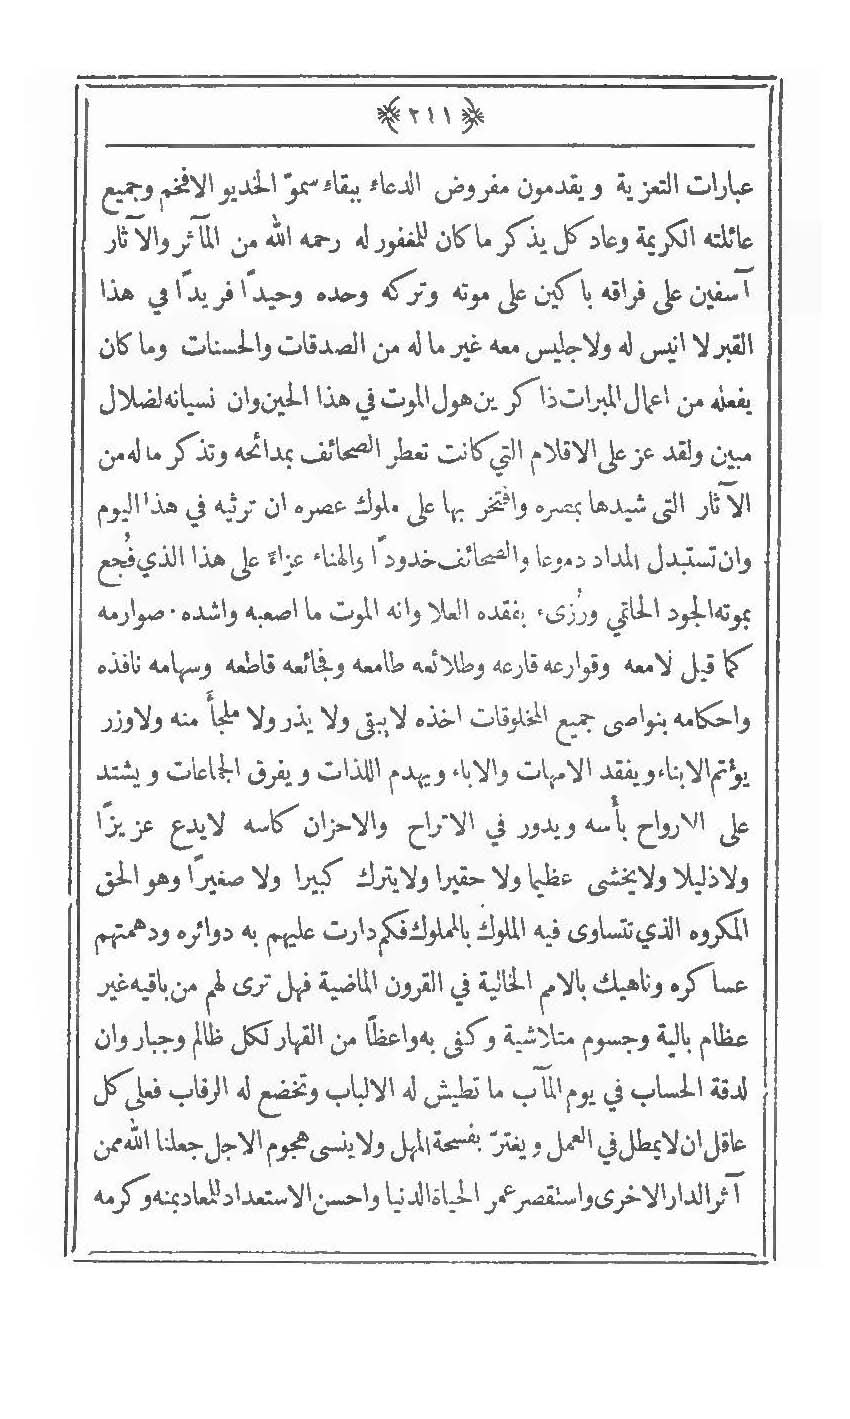 ٢٤١
عبارات التعزية ويقدمون مفروض الدعاء ببقاء سموّ الخديو الافخم وجميع
عائلته الكريمة وعاد كل يذكر ما كان للمغفور له رحمه الله من المآثر والآثار
آسفين على فراقه باكين على موته وتركه وحده وحيدًا فريدًا في هذا
القبر لا انيس له ولا جليس معه غير ما له من الصدقات والحسنات وما كان
يفعله من اعمال المبرات ذاكرين هول الموت في هذا الحين وان نسيانه لضلال
مبين ولقد عز على الاقلام التي كانت تعطر الصحائف بمدائحه وتذكر ما له من
الآثار التى شيدها بمصره وافتخر بها على ملوك عصره ان ترثيه في هذا اليوم
وان تستبدل المداد دموعا والصحائف خدودًا والهناء عزاءً على هذا الذي فُجع
بموته الجود الحاتمي ورُزىء بفقده العلا وانه الموت ما اصعبه واشده. صوارمه
كما قيل لامعه وقوارعه قارعه وطلائعه طامعه وفجائعه قاطعه وسهامه نافذه
واحكامه بنواصى جميع المخلوقات اخذه لا يبقى ولا يذر ولا ملجأ منه ولا وزر
يؤتم الابناء ويفقد الامهات والاباء ويهدم اللذات ويفرق الجماعات ويشتد
على الارواح بأسه ويدور في الاتراح والاحزان كاسه لا يدع عزيزًا
ولا ذليلا ولا يخشى عظيما ولا حقيرا ولا يترك كبيرا ولا صغيرًا وهو الحق
المكروه الذي تتساوى فيه الملوك بالمملوك فكم دارت عليهم به دوائره ودهمتهم
عساكره وناهيك بالامم الخالية في القرون الماضية فهل ترى لهم من باقيه غير
عظام بالية وجسوم متلاشية وكفى به واعظًا من القهار لكل ظالم وجبار وان
لدقة الحساب في يوم المآب ما تطيش له الالباب وتخضع له الرقاب فعلى كل
عاقل ان لا يمطل في العمل ويغترّ بفسحة المهل ولا ينسى هجوم الاجل جعلنا الله ممن
آثر الدار الاخرى واستقصر عمر الحياة الدنيا واحسن الاستعداد للمعاد بمنه وكرمه